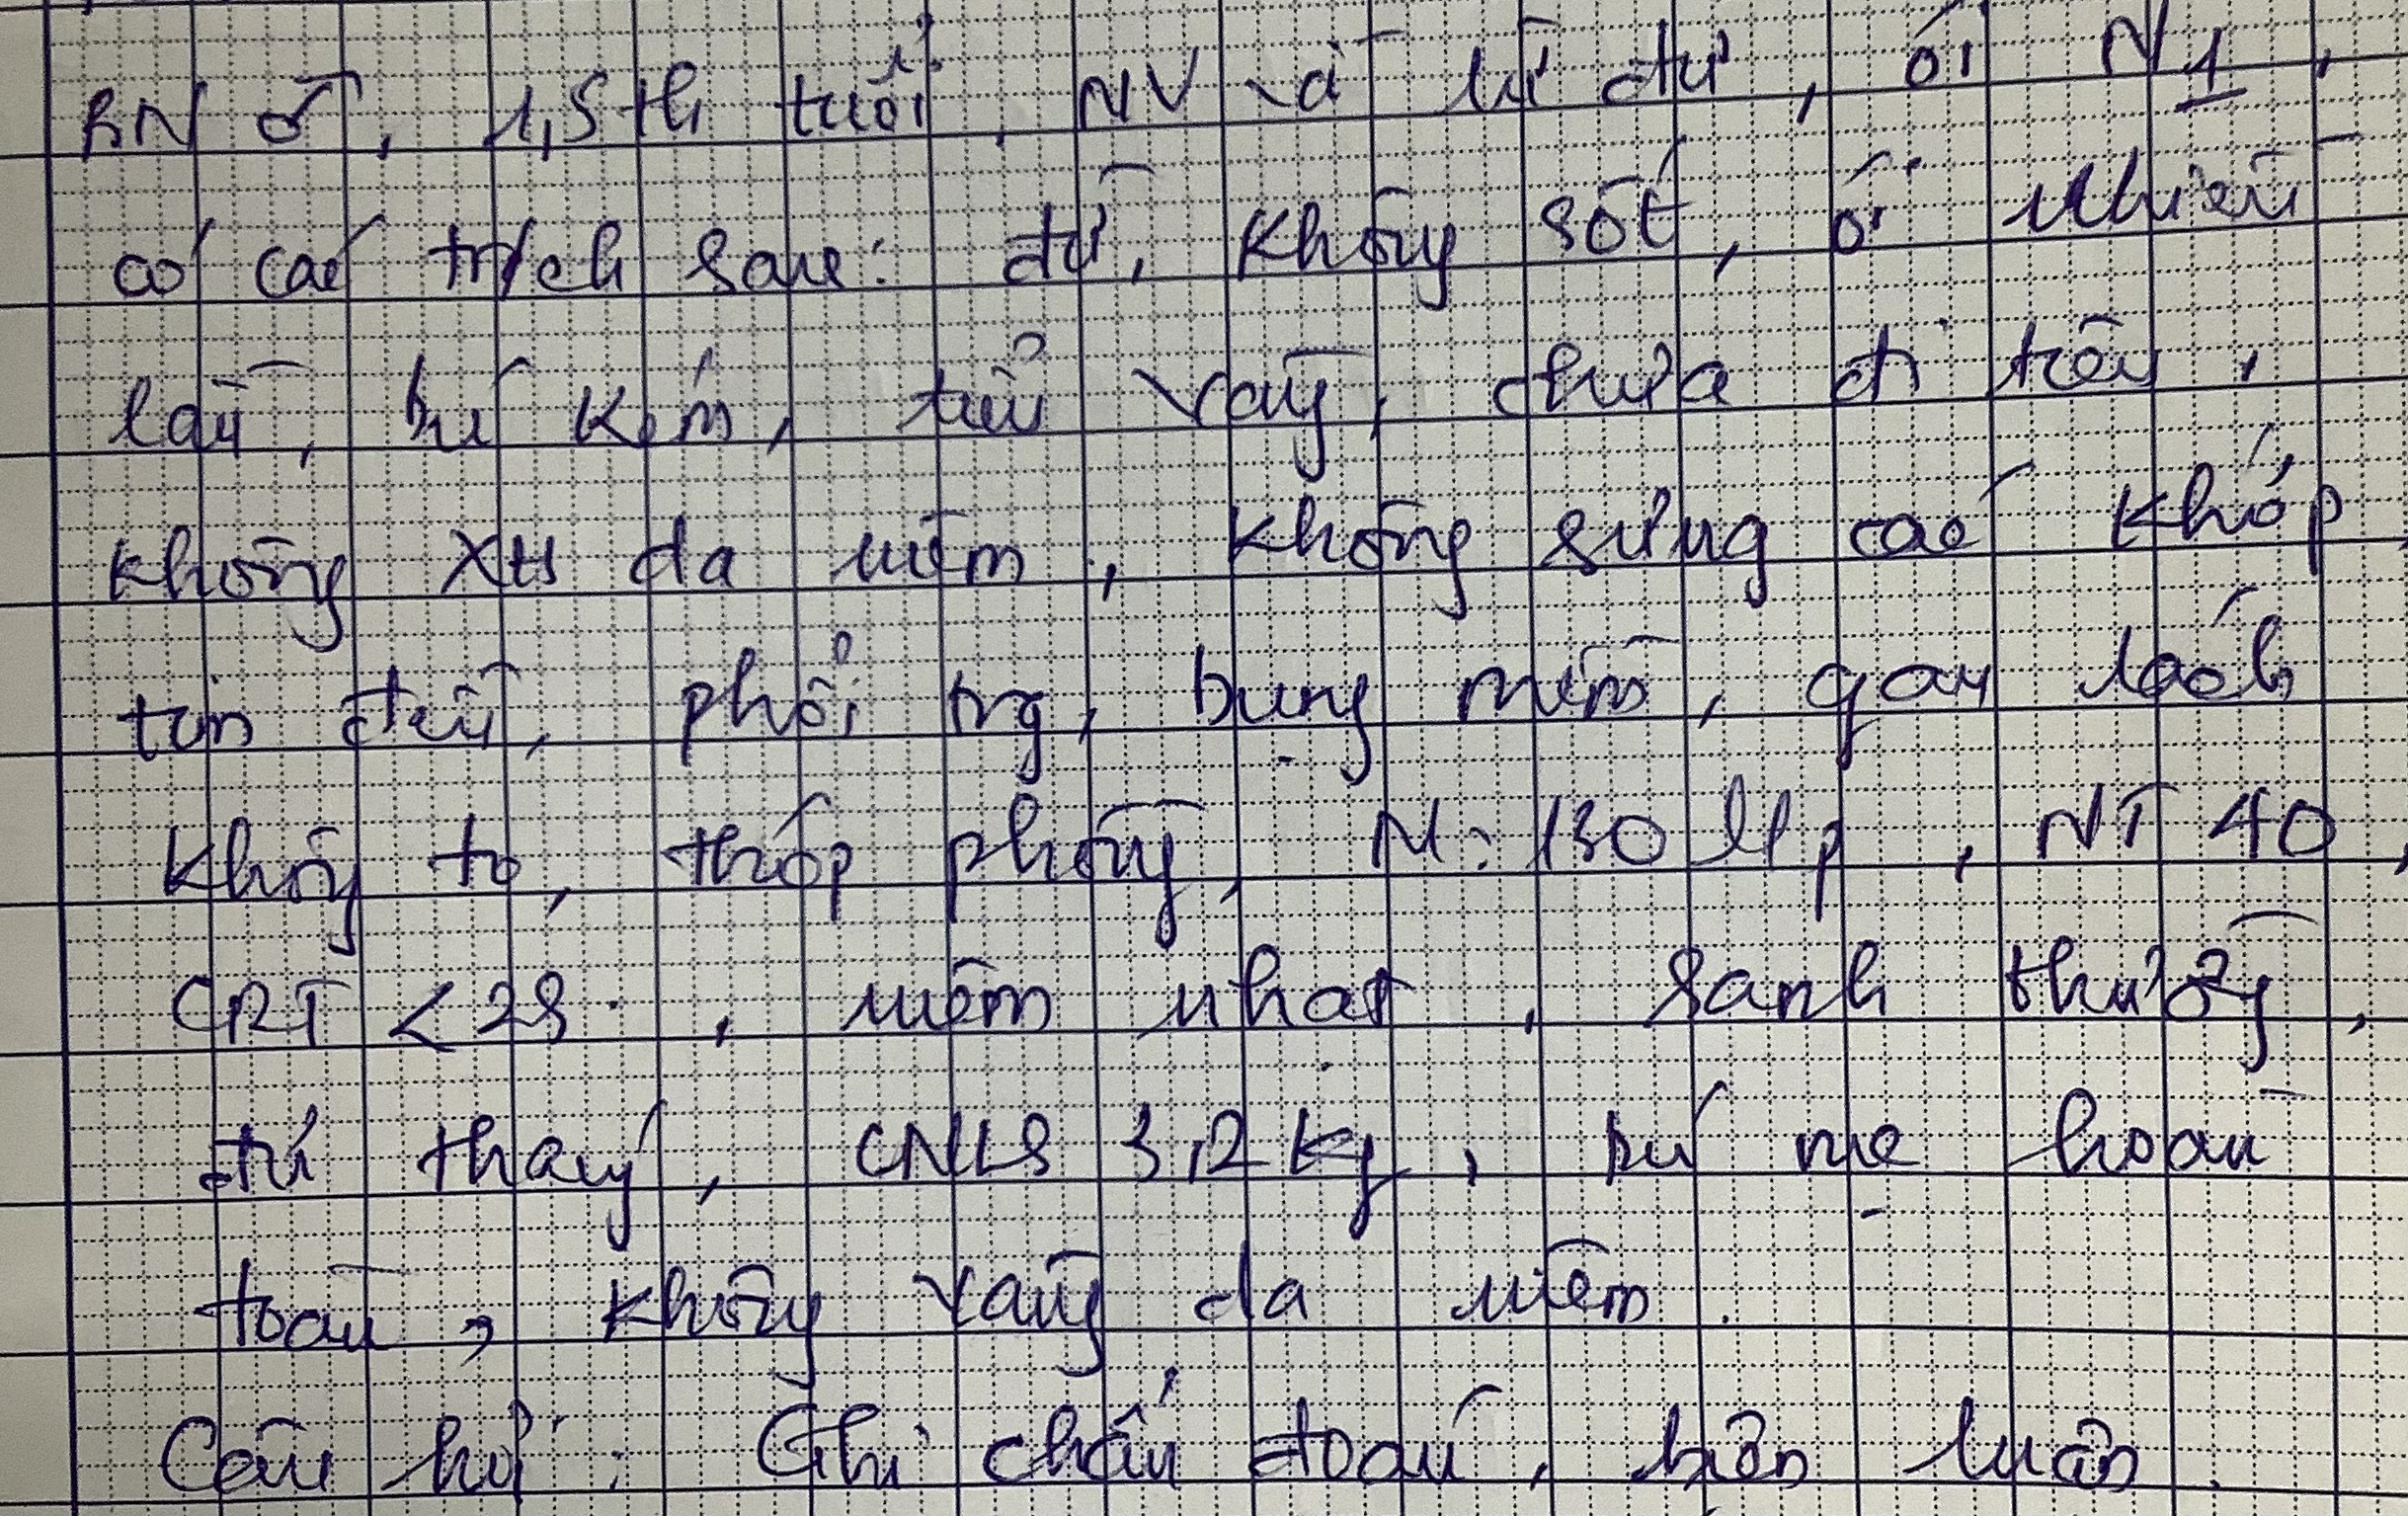 BN ♂, 1,5 th tuổi, NV vì lừ đừ, ói N1,
có các tr/ch sau: đừ, không sốt, ói nhiều
lần, bú kém, tiểu vàng, chưa đi tiêu,
không XH da niêm, không sưng các khớp,
tim đều, phổi trg, bụng mềm, gan lách
không to, thóp phồng, M: 130 l/p, NT 40,
CRT < 2s, niêm nhạt, sanh thường,
đủ tháng, CNLS 3,2 kg, bú mẹ hoàn
toàn, không vàng da niêm.
Câu hỏi: Ghi chẩn đoán, biện luận.